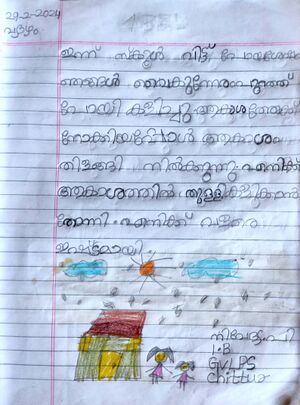 29-2-2024
വ്യാഴം
ഇന്ന് സ്കൂൾ വിട്ട് പോയശേഷം
ഞങ്ങൾ വൈകുന്നേരംപുറത്ത്
പോയി കളിച്ചു ആകാശത്തേക്ക്
നോക്കിയപ്പോൾ ആകാശം
തിളങ്ങി നിൽക്കുന്നു. എനിക്ക്
ആകാശത്തിൽ തുള്ളികളിക്കാൻ
തോന്നി. എനിക്ക് വളരെ
ഇഷ്ടമായി.
നിവേദ്യ. പി
1-B
GVLPS
Chittur